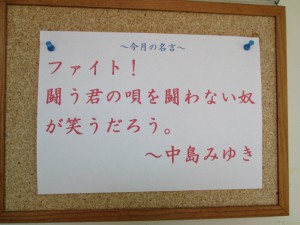 ～今月の名言～
ファイト！
闘う君の唄を闘わない奴
が笑うだろう。
～中島みゆき